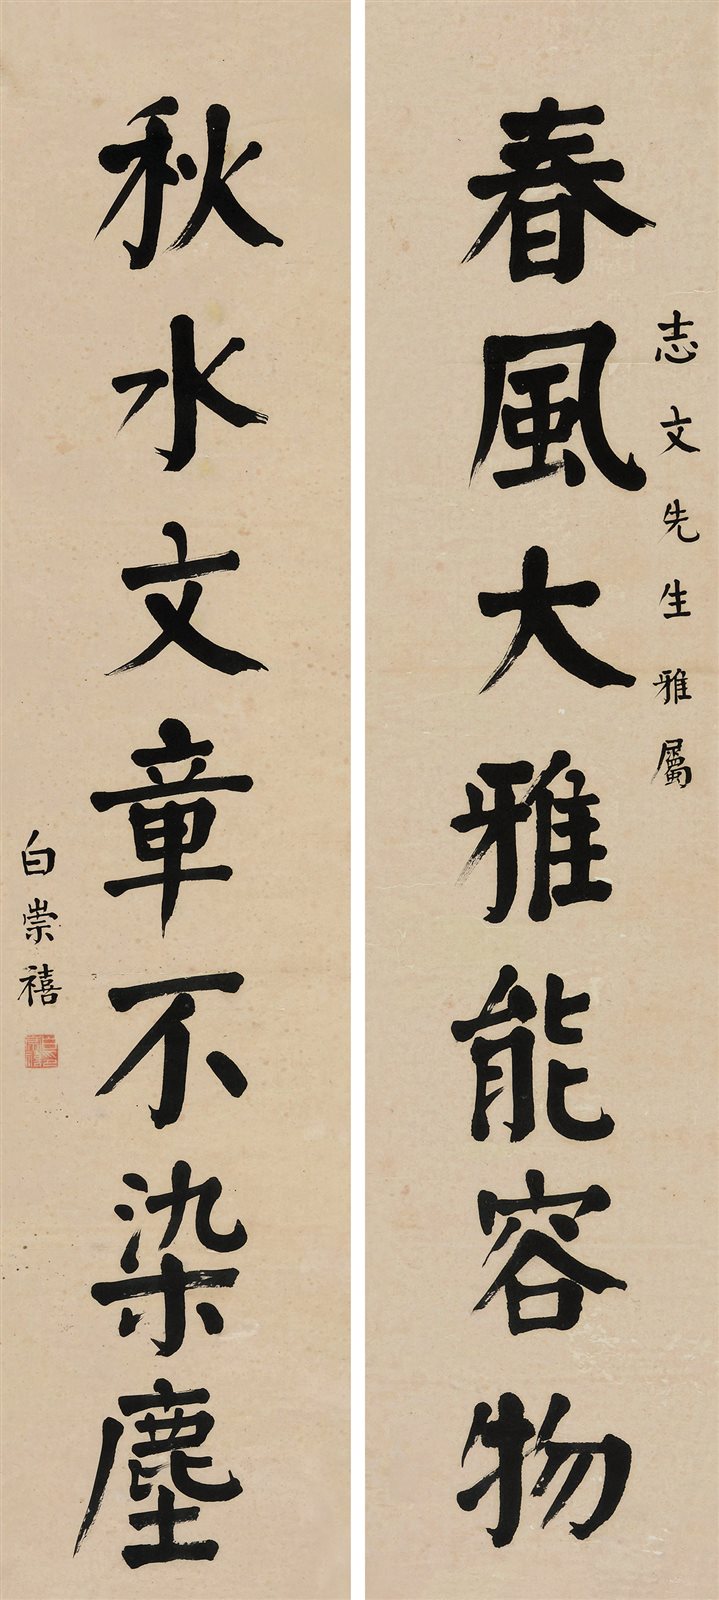 志文先生雅屬
春風大雅能容物
秋水文章不染塵
白崇禧